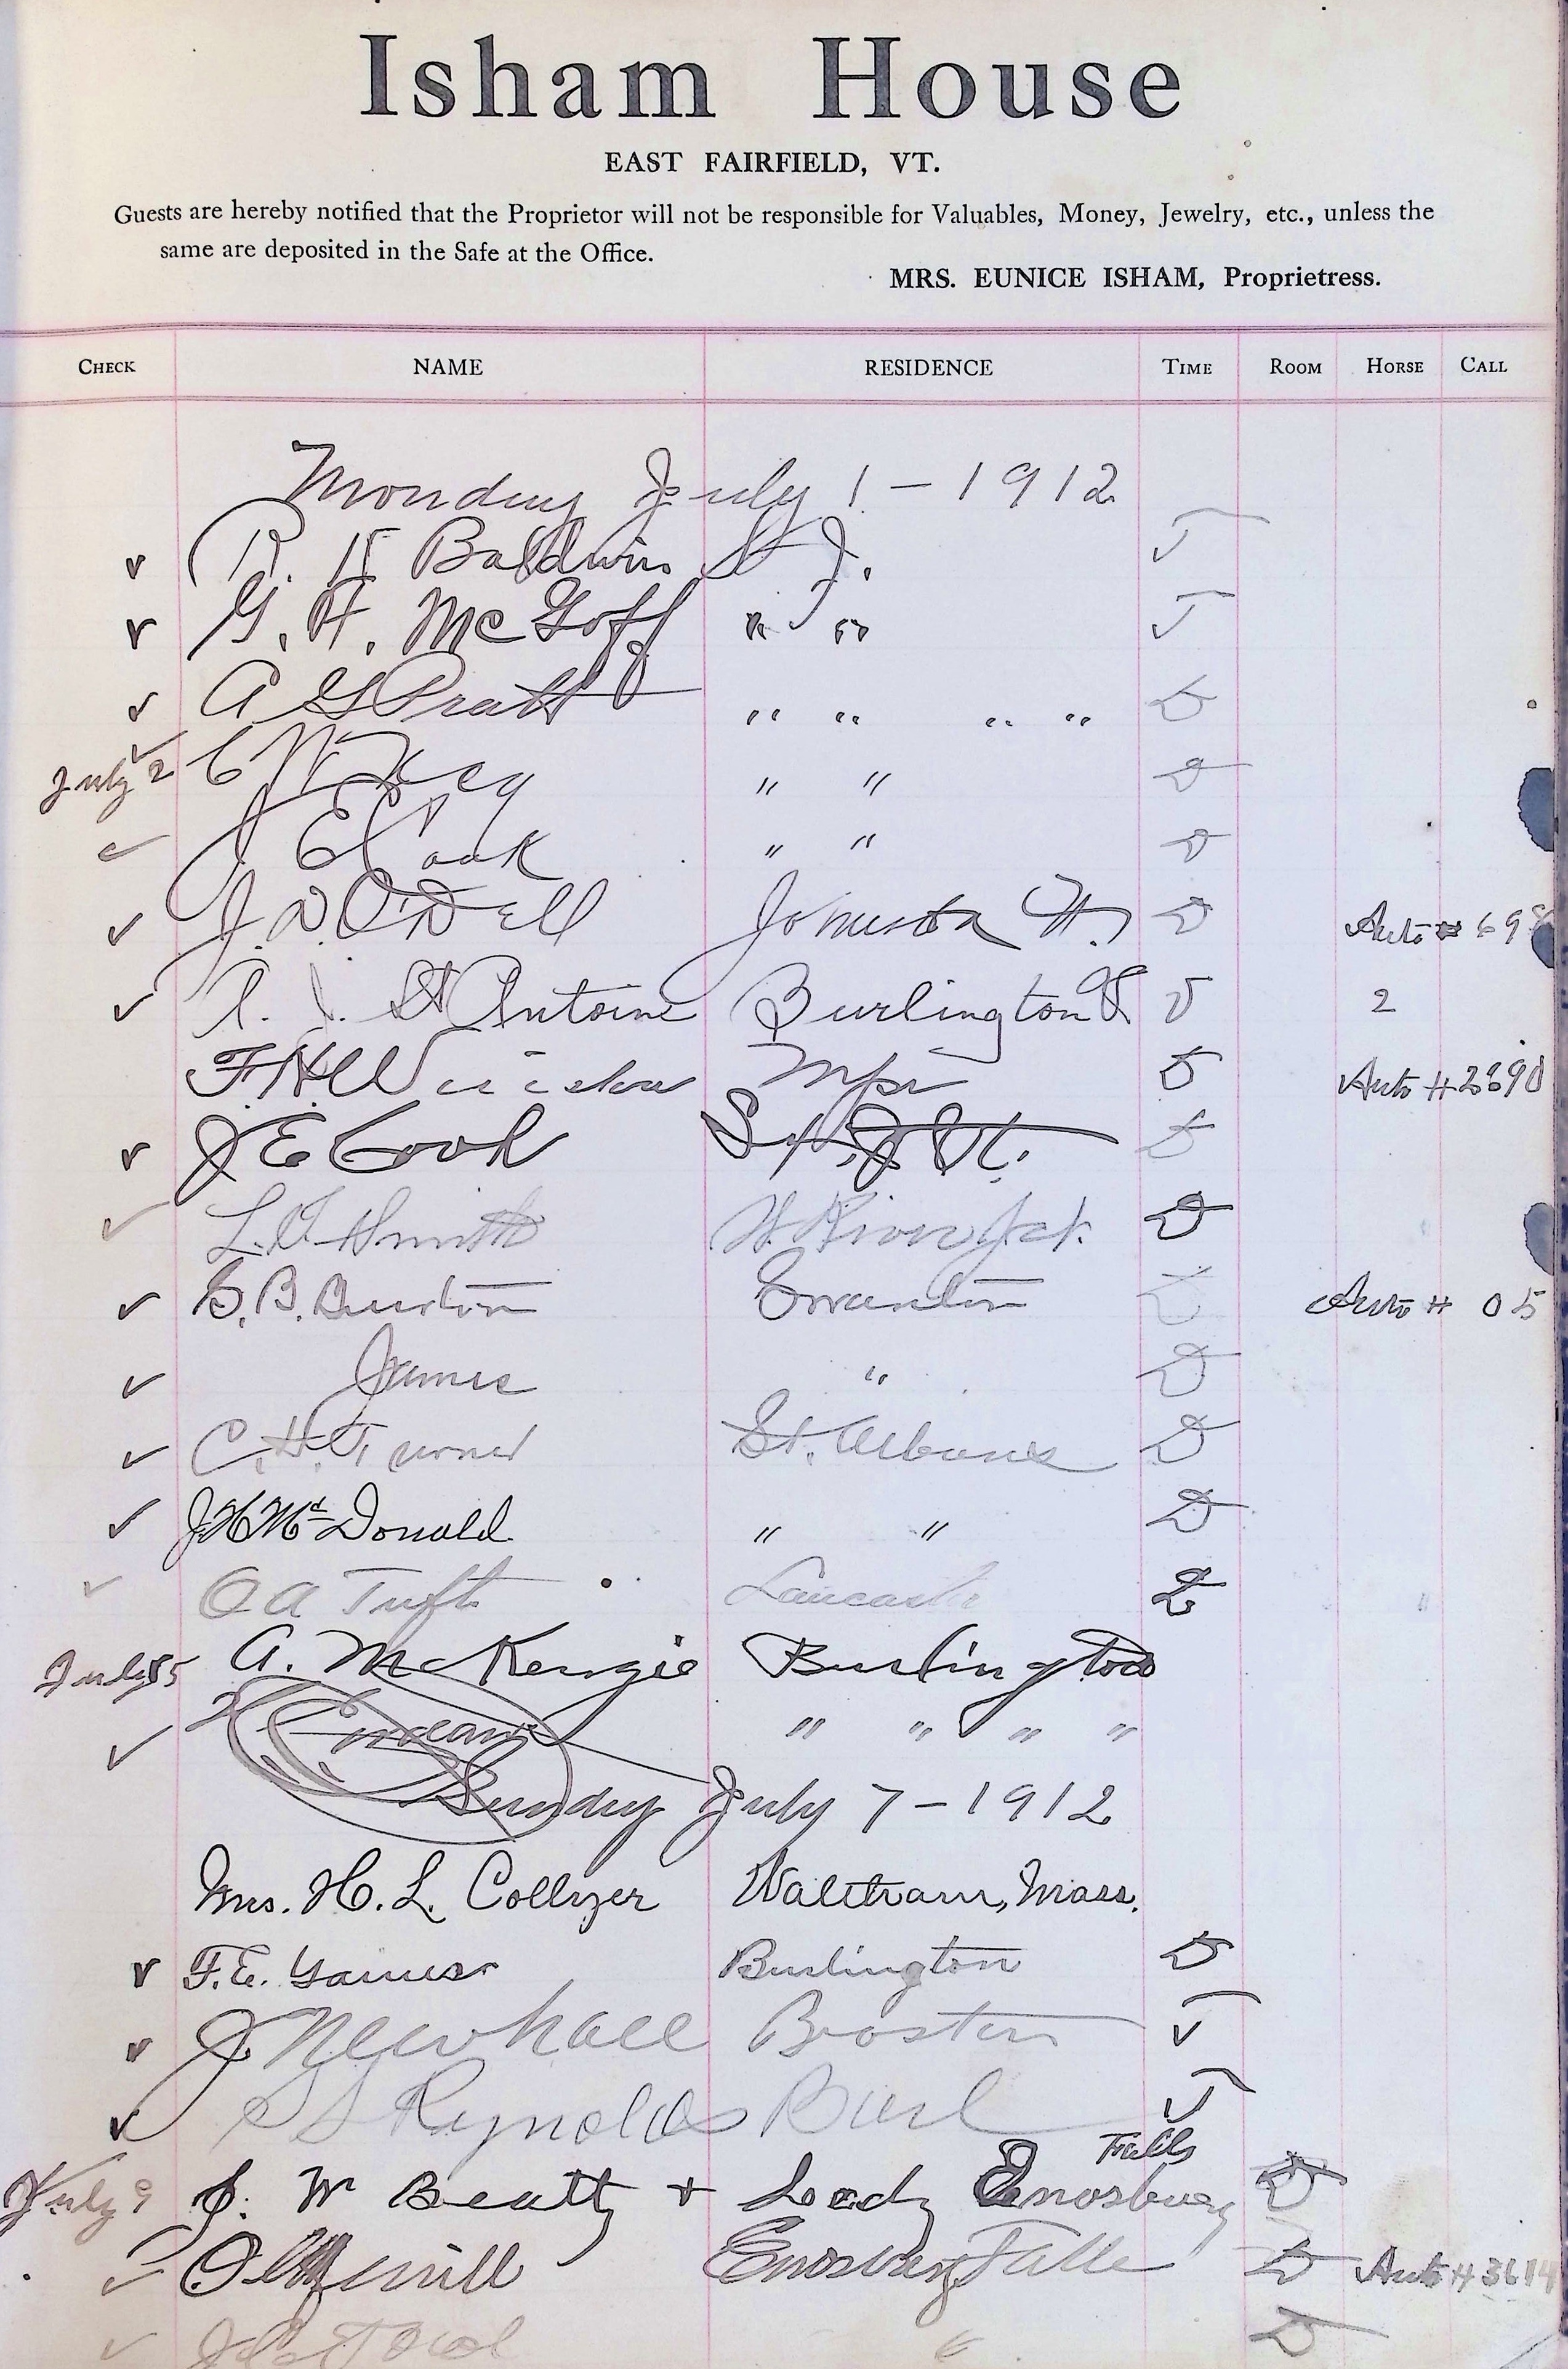 Isham House
EAST FAIRFIELD, VT.
Guests are hereby notified that the Proprietor will not be responsible for Valuables, Money, Jewelry, etc., unless the
same are deposited in the Safe at the Office.
MRS. EUNICE ISHAM, Proprietress.
CHECK NAME RESIDENCE TIME ROOM HORSE CALL
Monday July 1 - 1912
R. H Baldwin St J.
G. H. McGoff " "
A G Pratt " " " "
July 2 C W " "
J E Cook " "
J. D. O'Dell Johnson Vt. Auto # 698
A. J. St Antoine Burlington Vt 2
F. H. Mpr Auto # 2690
J E Cook St. J Vt.
L. Smith W River Jct.
G. B. Burton Swanton Auto # 05
James "
C. H. Turner St. Albans
J H McDonald " "
O A Tuft
July 5 A. McKenzie Burlington
" " " "
Sunday July 7 - 1912
Mrs. H. L. Collyer Waltham, Mass.
F. E. Gaines Burlington
J Newhall Boston
S S Reynolds Burl
Falls
July 9 J. W Beatty + Lady Enosburg
Merrill Enosburg Falls Auto # 3614